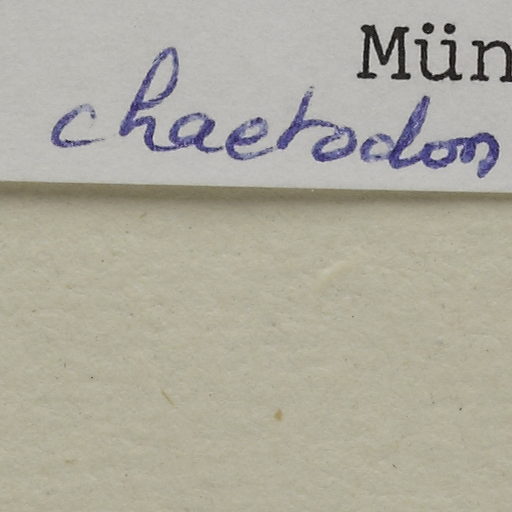 Mün
chaetodon